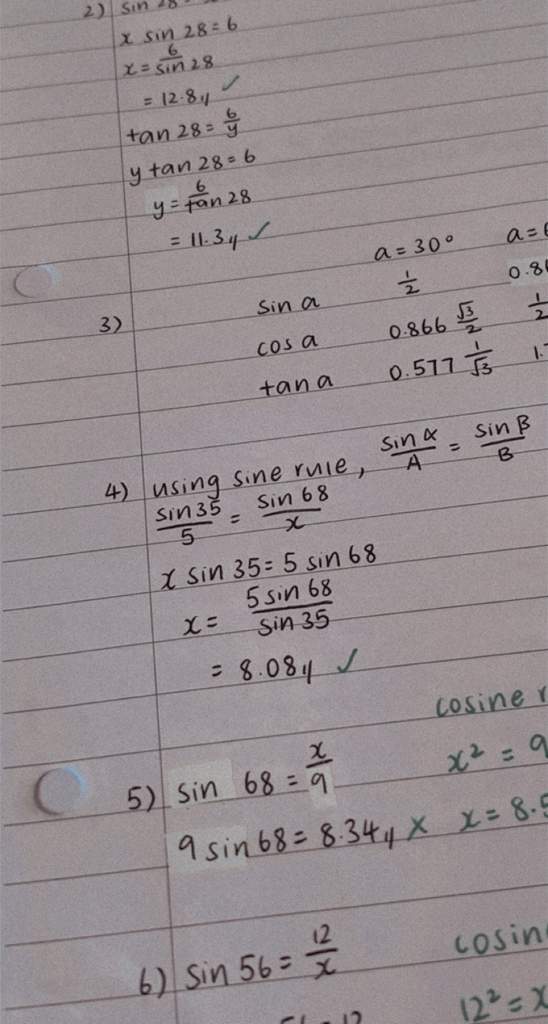 2) sin 28
x sin 28 = 6
x = 6/sin 28
= 12.8 ✓
tan 28 = 6/y
y tan 28 = 6
y = 6/tan 28
= 11.3 ✓
a = 30° a =
3) sin a 1/2 0.8
cos a 0.866 √3/2 1/2
tan a 0.577 1/√3 1.
4) using sine rule, sin α/A = sin β/B
sin 35/5 = sin 68/x
x sin 35 = 5 sin 68
x = 5 sin 68/sin 35
= 8.08 ✓
cosine
5) sin 68 = x/9 x² = 9
9 sin 68 = 8.34 × x = 8.5
6) sin 56 = 12/x cosin
12² = x